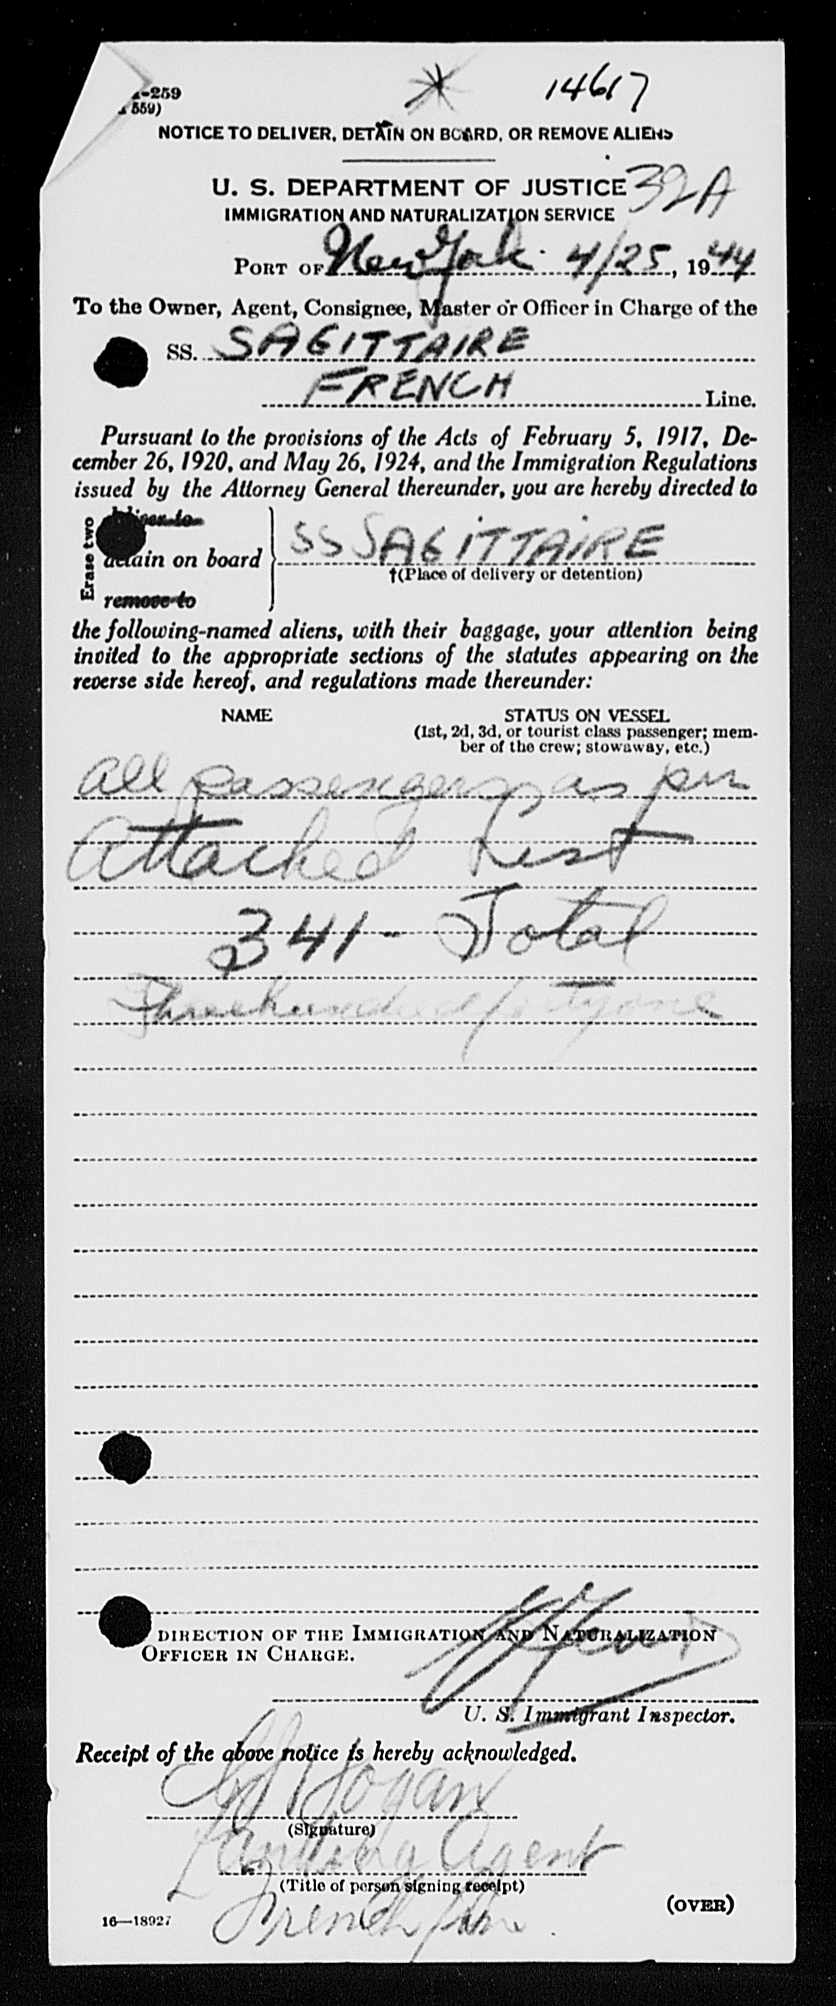 -259
559)
14617
NOTICE TO DELIVER, DETAIN ON BOARD, OR REMOVE ALIENS
U. S. DEPARTMENT OF JUSTICE 32A
IMMIGRATION AND NATURALIZATION SERVICE
PORT OF New York 4/25, 1944
To the Owner, Agent, Consignee, Master or Officer in Charge of the
SS. SAGITTAIRE
FRENCH Line.
Pursuant to the provisions of the Acts of February 5, 1917, De-
cember 26, 1920, and May 26, 1924, and the Immigration Regulations
issued by the Attorney General thereunder, you are hereby directed to
Erase two
deliver to
detain on board
remove to
SS SAGITTAIRE
†(Place of delivery or detention)
the following-named aliens, with their baggage, your attention being
invited to the appropriate sections of the statutes appearing on the
reverse side hereof, and regulations made thereunder:
NAME STATUS ON VESSEL
(1st, 2d, 3d, or tourist class passenger; mem-
ber of the crew; stowaway, etc.)
all passengers as per
Attached List
341 - Total
Three hundred forty one
DIRECTION OF THE IMMIGRATION AND NATURALIZATION
OFFICER IN CHARGE.
U. S. Immigrant Inspector.
Receipt of the above notice is hereby acknowledged.
Hogan
(Signature)
Landing Agent
(Title of person signing receipt)
French Line
16—18927
(OVER)